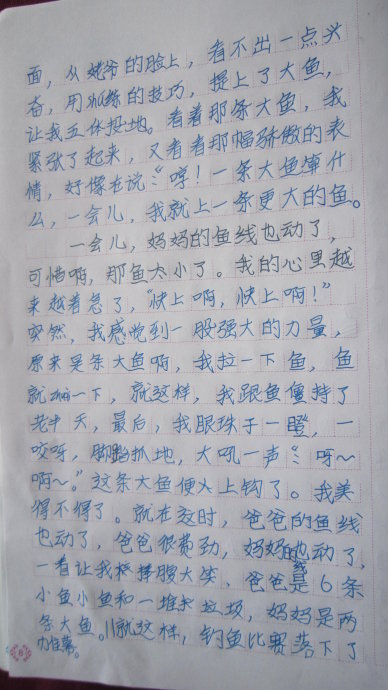 面，从姥爷的脸上，看不出一点兴
奋，用熟练的技巧，提上了大鱼，
让我五体投地。看着那条大鱼，我
紧张了起来，又看看那幅骄傲的表
情，好像在说：“哼！一条大鱼算什
么，一会儿，我就上一条更大的鱼。
一会儿，妈妈的鱼线也动了，
可惜啊，那鱼太小了。我的心里越
来越着急了，“快上啊，快上啊！”
突然，我感觉到一股强大的力量，
原来是条大鱼啊，我拉一下鱼，鱼
就一下，就这样，我跟鱼僵持了
老半天，最后，我眼珠子一瞪，一
咬呀，脚抓地，大吼一声：“呀～
啊～。”这条大鱼便头上钩了。我美
得不得了。就在这时，爸爸的鱼线
也动了，爸爸很费劲，妈妈的线也动了，
一看让我捧腹大笑，爸爸是6条
小鱼小鱼和一堆垃圾，妈妈是两
条大鱼。就这样，钓鱼比赛落下了
帷幕。